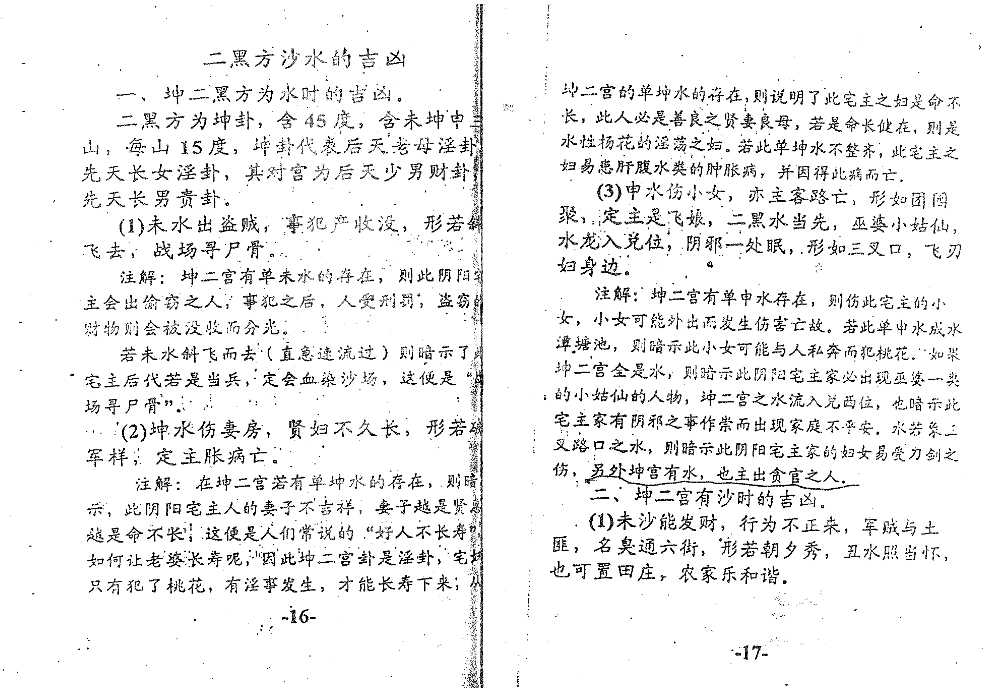 二黑方沙水的吉凶
一、坤二黑方为水时的吉凶。
二黑方为坤卦，含45度，含未坤申三
山，每山15度，坤卦代表后天老母淫卦
先天长女淫卦，其对宫为后天少男财卦
先天长男贵卦。
(1)未水出盗贼，事犯产收没，形若斜
飞去，战场寻尸骨。
注解：坤二宫有单未水的存在，则此阴阳宅
主会出偷窃之人，事犯之后，人受刑罚，盗窃的
财物则会被没收而分光。
若未水斜飞而去（直急速流过）则暗示了此
宅主后代若是当兵，定会血染沙场，这便是“战
场寻尸骨”。
(2)坤水伤妻房，贤妇不久长，形若破
军样，定主胀病亡。
注解：在坤二宫若有单坤水的存在，则暗
示，此阴阳宅主人的妻子不吉祥，妻子越是贤惠
越是命不长，这便是人们常说的“好人不长寿”
如何让老婆长寿呢，因此坤二宫卦是淫卦，宅
只有犯了桃花，有淫事发生，才能长寿下来，从
-16-
坤二宫的单坤水的存在，则说明了此宅主之妇是命不
长，此人必是善良之贤妻良母，若是命长健在，则是
水性杨花的淫荡之妇。若此单坤水不整齐，此宅主之
妇易患肝腹水类的肿胀病，并因得此病而亡。
(3)申水伤小女，亦主客路亡，形如团圆
聚，定主是飞娘，二黑水当先，巫婆小姑仙，
水龙入兑位，阴邪一处眠，形如三叉口，飞刃
妇身边。
注解：坤二宫有单申水存在，则伤此宅主的小
女，小女可能外出而发生伤害亡故。若此单申水成水
潭塘池，则暗示此小女可能与人私奔而犯桃花。如果
坤二宫全是水，则暗示此阴阳宅主家必出现巫婆一类
的小姑仙的人物，坤二宫之水流入兑西位，也暗示此
宅主家有阴邪之事作祟而出现家庭不平安。水若象三
叉路口之水，则暗示此阴阳宅主家的妇女易受刀剑之
伤，另外坤宫有水，也主出贪官之人。
二、坤二宫有沙时的吉凶。
(1)未沙能发财，行为不正来，军贼与土
匪，名臭通六街，形若朝夕秀，丑水照当怀，
也可置田庄，农家乐和谐。
-17-